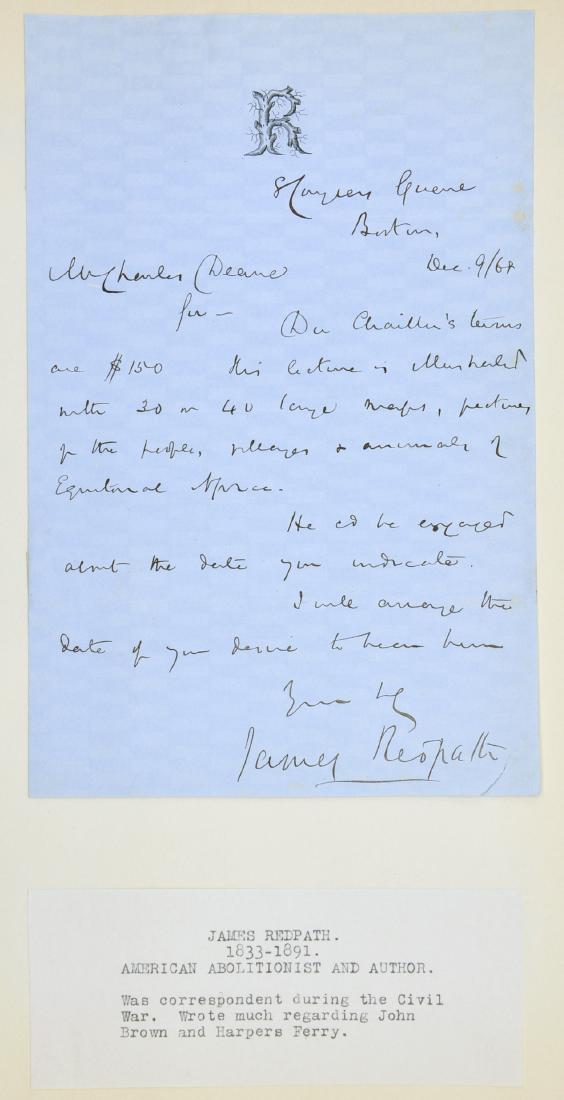 R
8 Congress Square
Boston,
Dec. 9/68
Mr Charles Deane
Sir —
Du Chaillu's terms
are $150 His lecture is illustrated
with 30 or 40 large maps, pictures
of the people, villages & animals of
Equatorial Africa.
He cd be engaged
about the date you indicate.
I will arrange the
date if you desire to hear him
Yours
James Redpath
JAMES REDPATH.
1833-1891.
AMERICAN ABOLITIONIST AND AUTHOR.
Was correspondent during the Civil
War. Wrote much regarding John
Brown and Harpers Ferry.